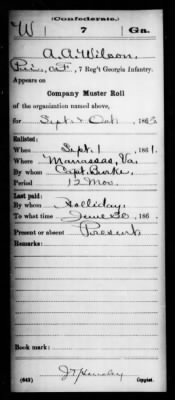 (Confederate.)
W 7 Ga.
A. A. Wilson,
Pri., Co. F., 7 Reg't Georgia Infantry.
Appears on
Company Muster Roll
of the organization named above,
for Sept & Oct, 186
Enlisted:
When Sept. 1, 1861.
Where Manassas, Va.
By whom Capt. Burke.
Period 12 Mos.
Last paid:
By whom Holliday,
To what time June 30, 186
Present or absent Present
Remarks:
Book mark:
(642) Copyist.